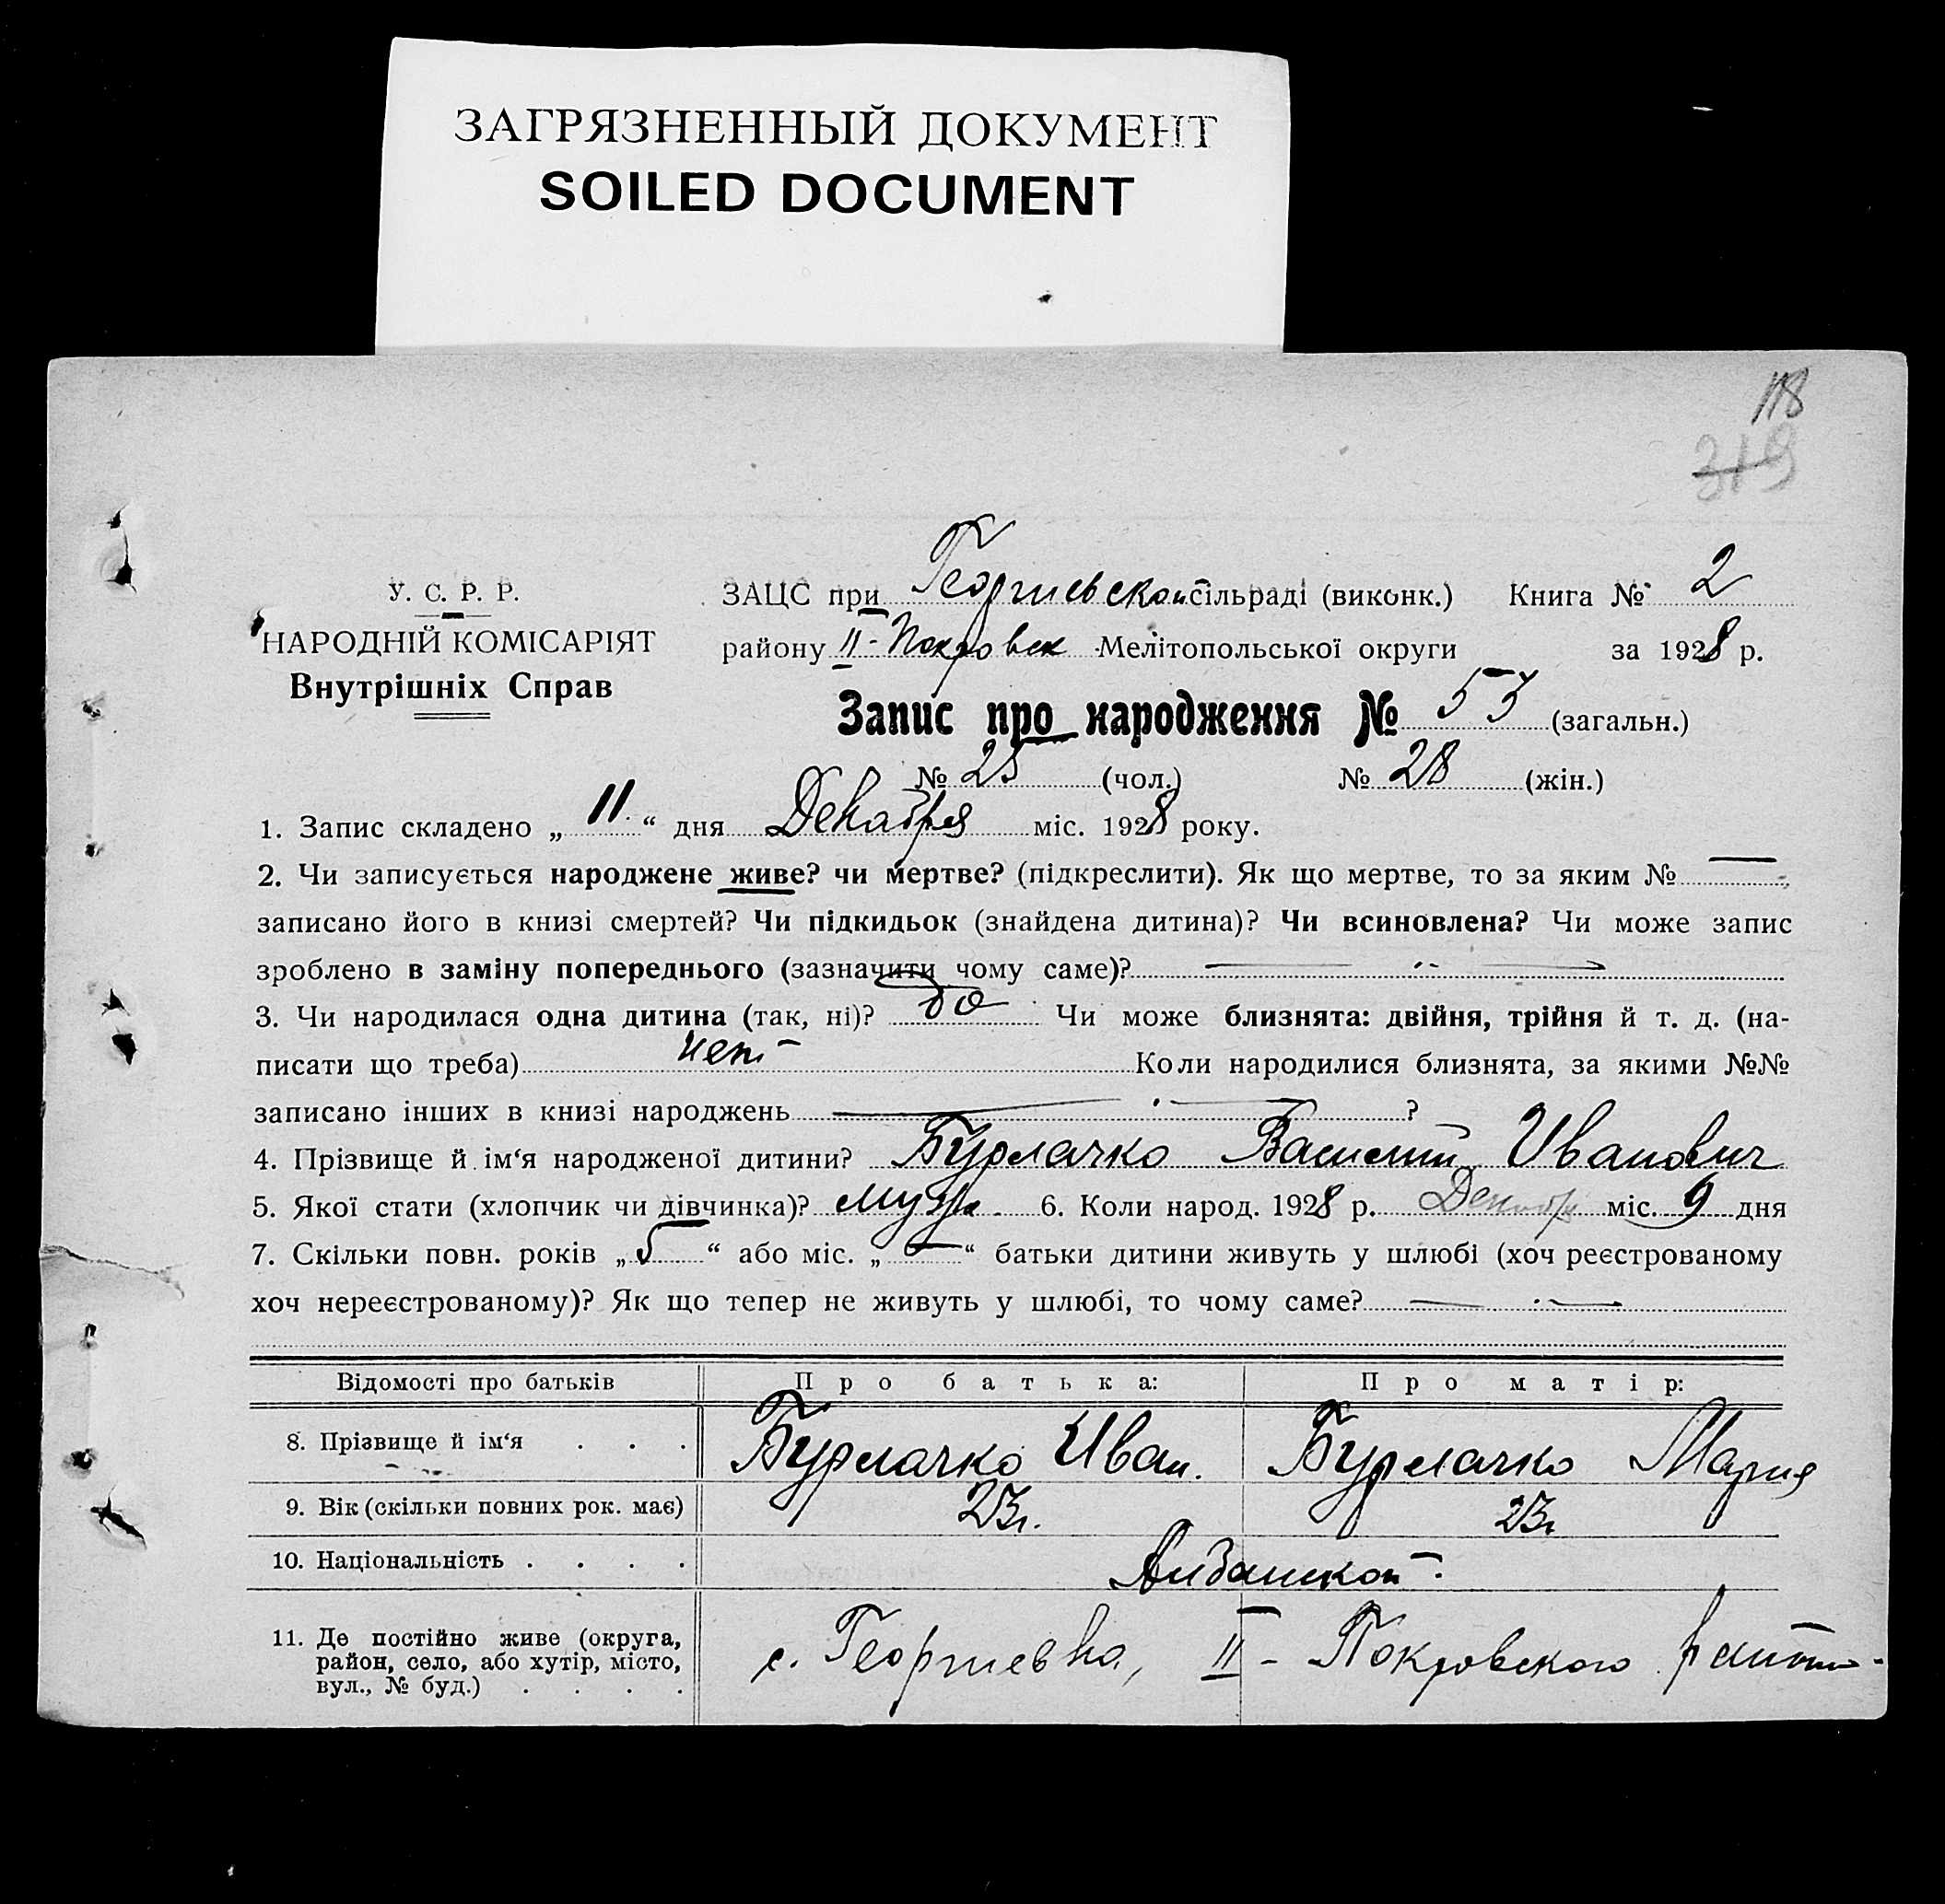 ЗАГРЯЗНЕННЫЙ ДОКУМЕНТ
SOILED DOCUMENT
118
319
У. С. Р. Р.
НАРОДНІЙ КОМІСАРІЯТ
Внутрішніх Справ
ЗАЦС при Георгиевской сільраді (виконк.) Книга № 2
району II-Покровск Мелітопольської округи за 1928 р.
Запис про народження № 53 (загальн.)
№ 25 (чол.) № 28 (жін.)
1. Запис складено „ 11 “ дня Декабря міс. 1928 року.
2. Чи записується народжене живе? чи мертве? (підкреслити). Як що мертве, то за яким № —
записано його в книзі смертей? Чи підкидьок (знайдена дитина)? Чи всиновлена? Чи може запис
зроблено в заміну попереднього (зазначити чому саме)? —
3. Чи народилася одна дитина (так, ні)? да Чи може близнята: двійня, трійня й т. д. (на-
писати що треба) нет Коли народилися близнята, за якими №№
записано інших в книзі народжень — ?
4. Прізвище й ім‘я народженої дитини? Бурлачко Василий Иванович
5. Якої стати (хлопчик чи дівчинка)? муж. 6. Коли народ. 1928 р. Декабр міс. 9 дня
7. Скільки повн. років „ 5 “ або міс. „ — “ батьки дитини живуть у шлюбі (хоч реєстрованому
хоч нереєстрованому)? Як що тепер не живуть у шлюбі, то чому саме? —
Відомості про батьків Про батька: Про матір:
8. Прізвище й ім‘я . . . Бурлачко Иван. Бурлачко Мария
9. Вік (скільки повних рок. має) 23г. 23г
10. Національність . . . . Албанской.
11. Де постійно живе (округа,
район, село, або хутір, місто,
вул., № буд.) . . . .
с. Георгиевка, II - Покровского района